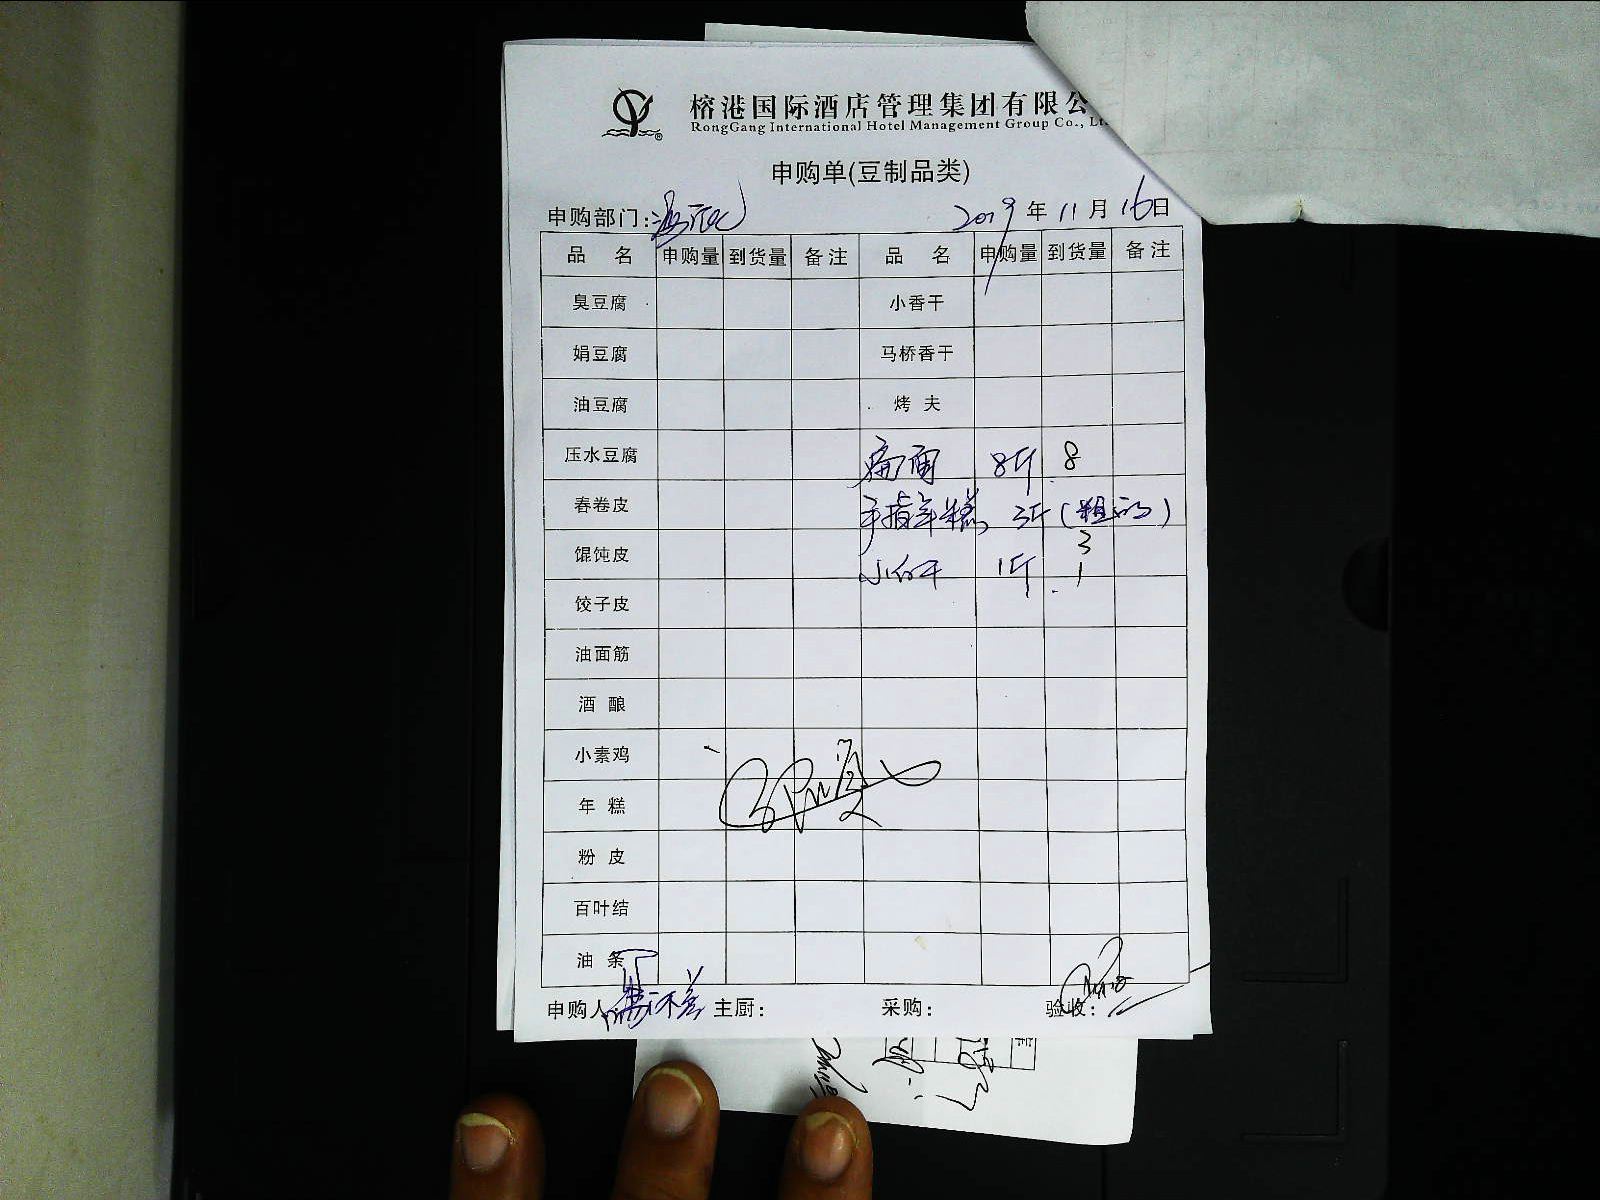 榕港国际酒店管理集团有限公
RongGang International Hotel Management Group Co., Lt
申购单(豆制品类)
申购部门: 2019年11月16日
品名 申购量 到货量 备注 品名 申购量 到货量 备注
臭豆腐 小香干
娟豆腐 马桥香干
油豆腐 烤夫
压水豆腐 扁面 8斤 8
春卷皮 手指年糕 3斤 (粗的)
馄饨皮 3
小白干 1斤 1
饺子皮
油面筋
酒酿
小素鸡
年糕
粉皮
百叶结
油条
申购人: 主厨: 采购: 验收: